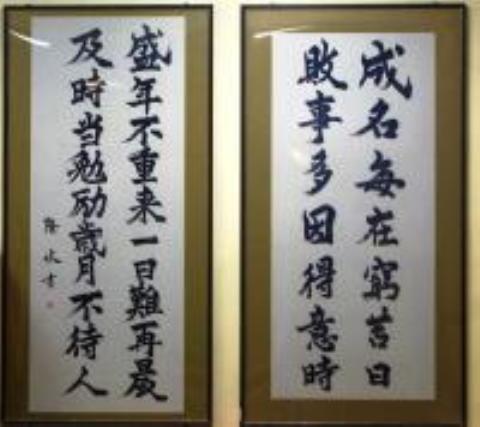 成名每在窮苦日
敗事多因得意時
盛年不重来一日難再晨
及時当勉励歳月不待人